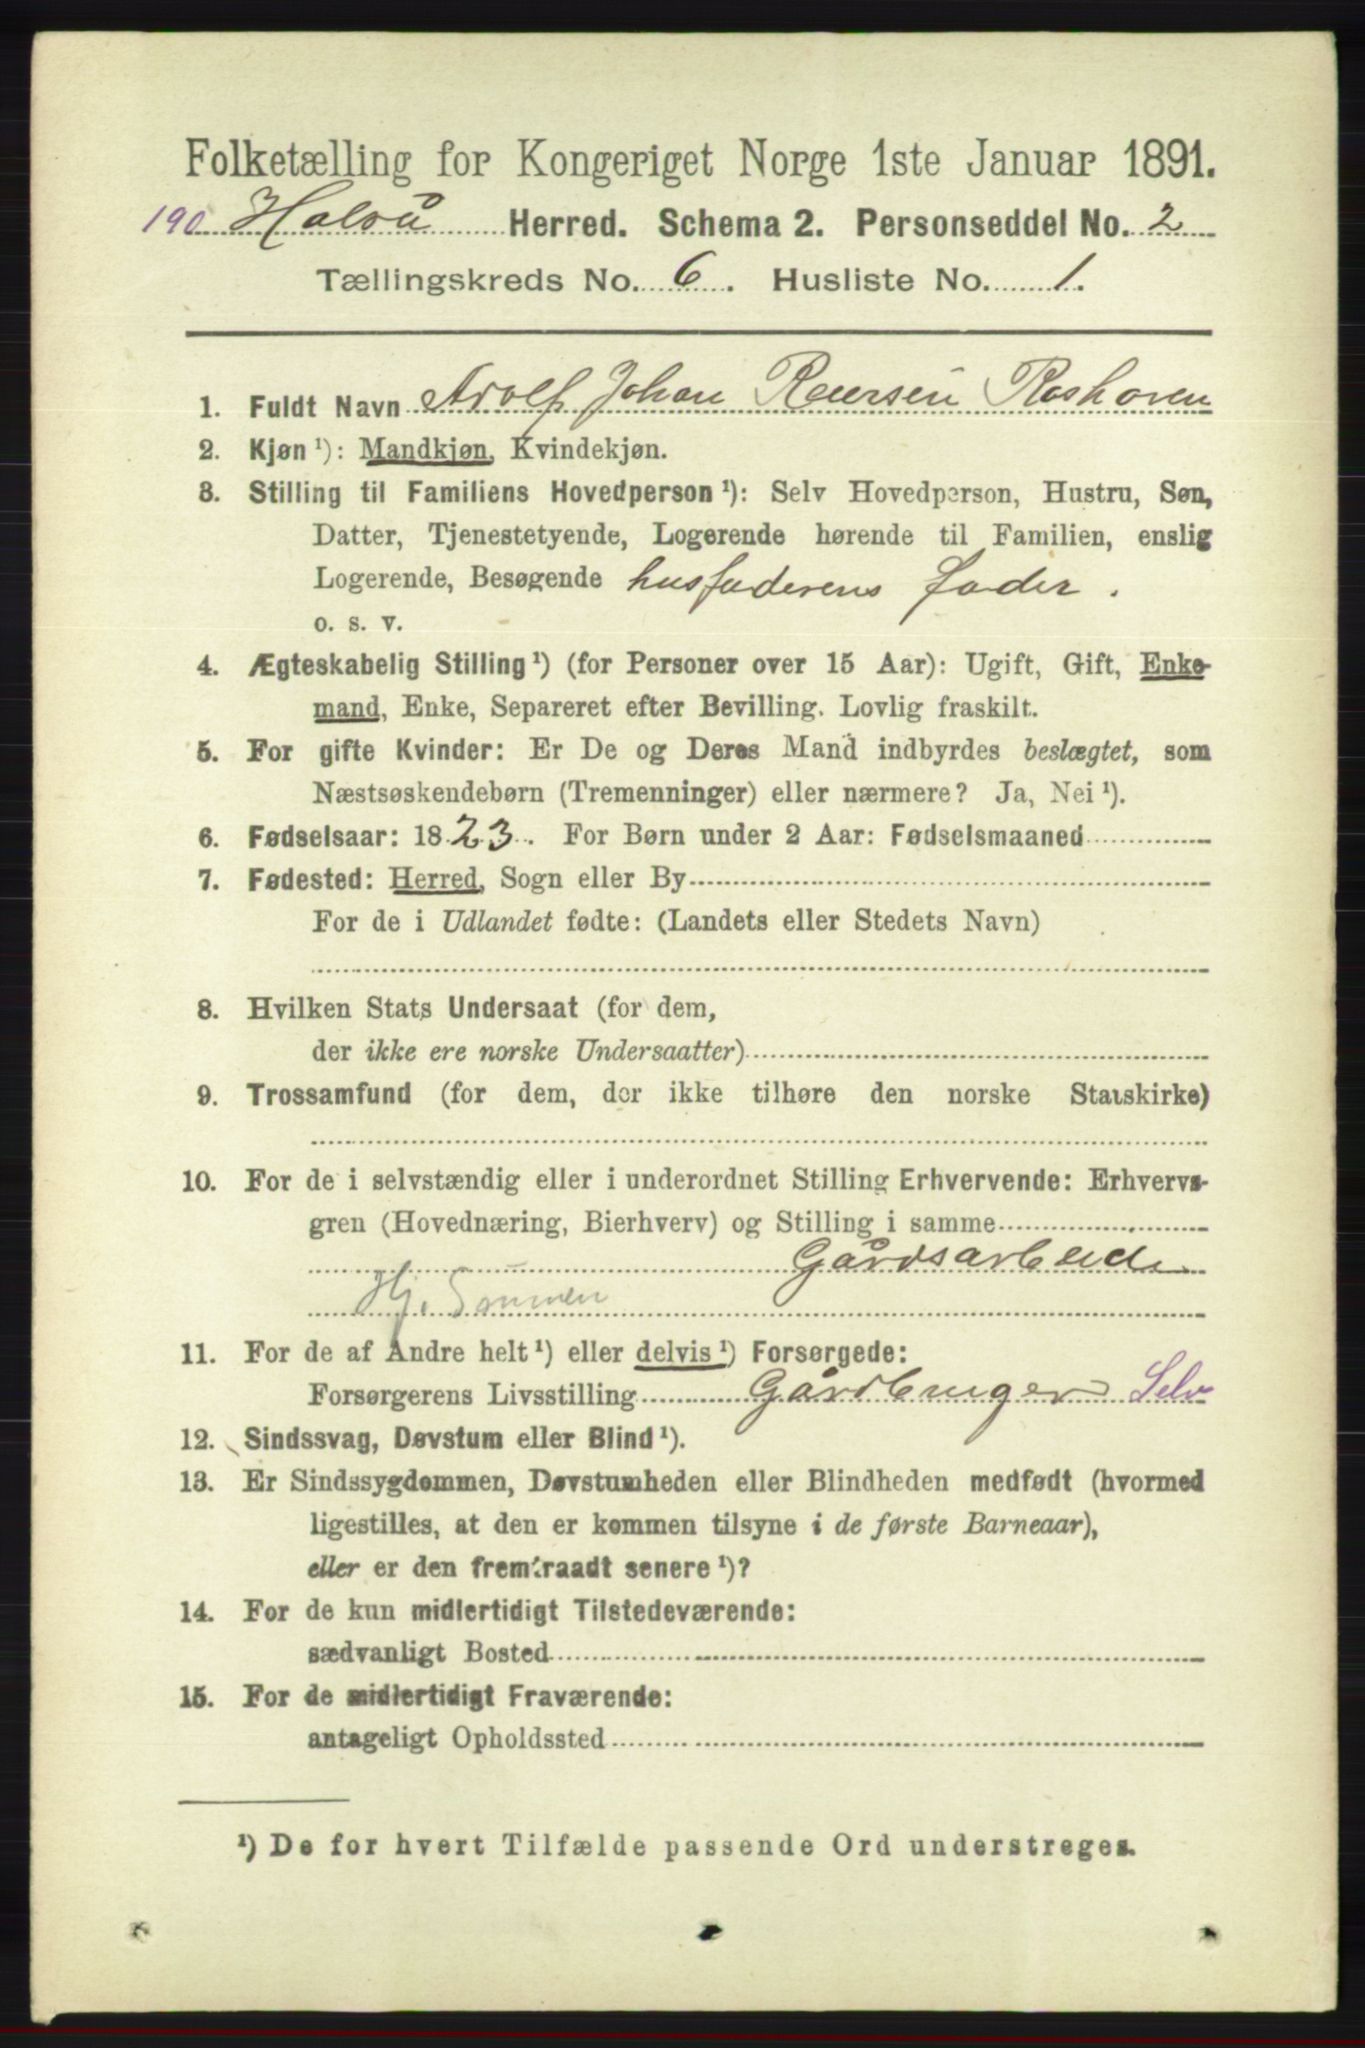 Folketælling for Kongeriget Norge 1ste Januar 1891.
190 Halså Herred. Schema 2. Personseddel No. 2
Tællingskreds No. 6. Husliste No. 1.
1. Fuldt Navn Adolf Johan Reiersen Roshoven
2. Kjøn ¹): Mandkjøn, Kvindekjøn.
3. Stilling til Familiens Hovedperson ¹): Selv Hovedperson, Hustru, Søn,
Datter, Tjenestetyende, Logerende hørende til Familien, enslig
Logerende, Besøgende husfaderens fader.
o. s. v.
4. Ægteskabelig Stilling ¹) (for Personer over 15 Aar): Ugift, Gift, Enke-
mand, Enke, Separeret efter Bevilling. Lovlig fraskilt.
5. For gifte Kvinder: Er De og Deres Mand indbyrdes beslægtet, som
Næstsøskendebørn (Tremenninger) eller nærmere? Ja, Nei ¹).
6. Fødselsaar: 1823. For Børn under 2 Aar: Fødselsmaaned
7. Fødested: Herred, Sogn eller By
For de i Udlandet fødte: (Landets eller Stedets Navn)
8. Hvilken Stats Undersaat (for dem,
der ikke ere norske Undersaatter)
9. Trossamfund (for dem, der ikke tilhøre den norske Statskirke)
10. For de i selvstændig eller i underordnet Stilling Erhvervende: Erhvervs-
gren (Hovednæring, Bierhverv) og Stilling i samme
Gårdsarbeide
Hj. Sønnen
11. For de af Andre helt ¹) eller delvis ¹) Forsørgede:
Forsørgerens Livsstilling Gårdbruger Selv
12. Sindssvag, Døvstum eller Blind ¹).
13. Er Sindssygdommen, Døvstumheden eller Blindheden medfødt (hvormed
ligestilles, at den er kommen tilsyne i de første Barneaar),
eller er den fremtraadt senere ¹)?
14. For de kun midlertidigt Tilstedeværende:
sædvanligt Bosted
15. For de midlertidigt Fraværende:
antageligt Opholdssted
¹) De for hvert Tilfælde passende Ord understreges.